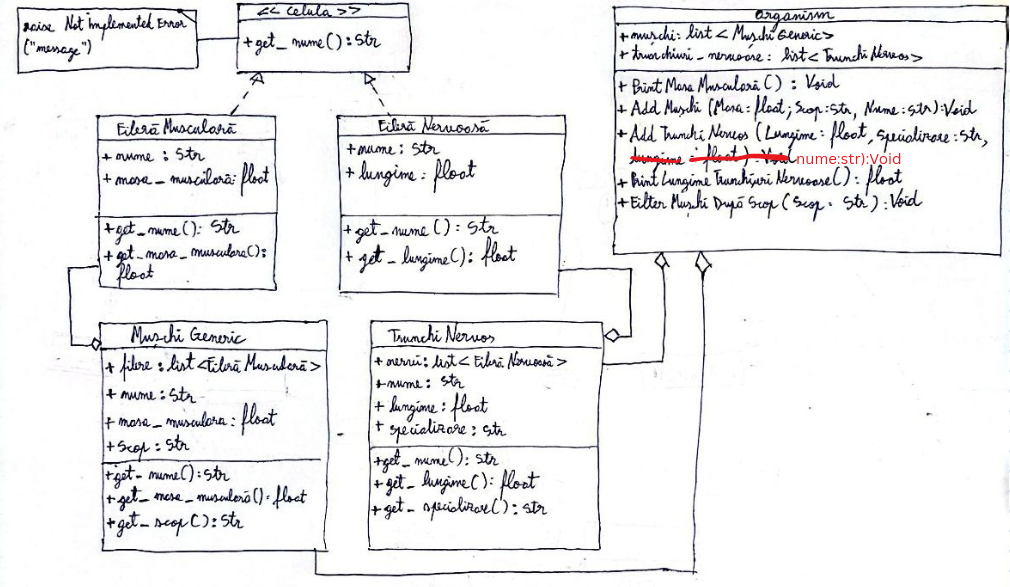 raise Not Implemented Error
("message")
<< Celula >>
+ get_nume(): Str
Organism
+ mușchi: list < Mușchi Generic >
+ trunchiuri_nervoase: list < Trunchi Nervos >
+ Print Masa Musculară () : Void
+ Add Mușchi (Masa: float; Scop: Str, Nume: Str): Void
+ Add Trunchi Nervos (Lungime: float, Specializare: Str,
lungime : float) : Void nume:str):Void
+ Print Lungime Trunchiuri Nervoase(): float
+ Filter Mușchi După Scop (Scop: Str): Void
Fibră Musculară
+ nume : Str
+ masa_musculară: float
+ get_nume(): Str
+ get_masa_musculara():
float
Fibră Nervoasă
+ nume: Str
+ lungime : float
+ get_nume() : Str
+ get_lungime(): float
Mușchi Generic
+ fibre : list <Fibră Musculară >
+ nume : Str
+ masa_musculara : float
+ Scop : Str
+ get_nume(): Str
+ get_masa_musculară(): float
+ get_scop(): Str
Trunchi Nervos
+ nervi: list < Fibră Nervoasă >
+ nume : Str
+ lungime : float
+ specializare : Str
+ get_nume(): Str
+ get_lungime(): float
+ get_specializare(): Str